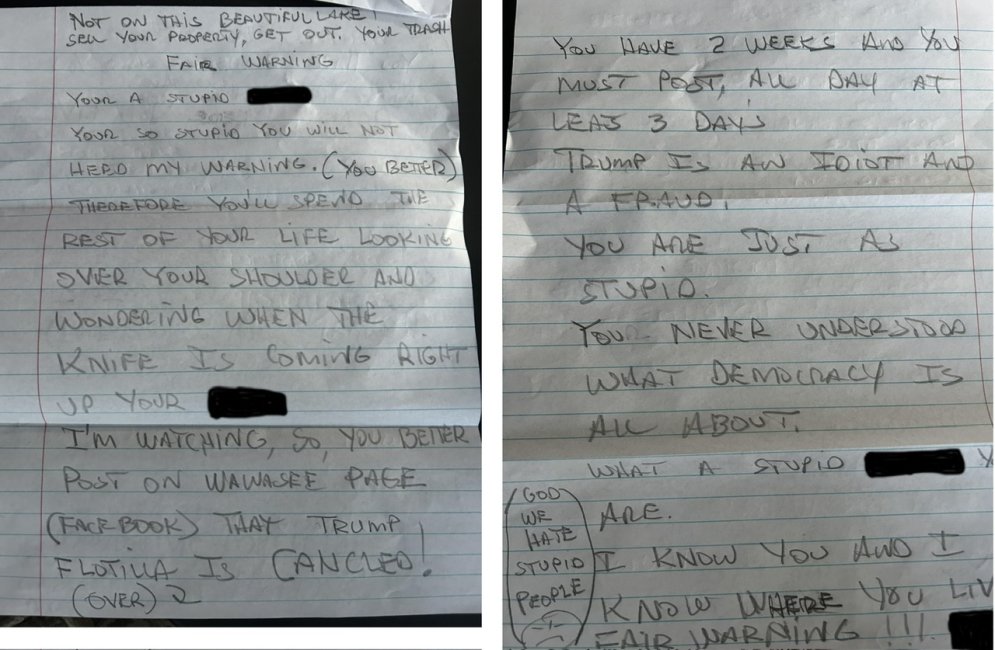 NOT ON THIS BEAUTIFUL LAKE!
SELL YOUR PROPERTY, GET OUT. YOUR TRASH
FAIR WARNING
YOUR A STUPID
YOUR SO STUPID YOU WILL NOT
HEED MY WARNING. (YOU BETER)
THEREFORE YOU'LL SPEND THE
REST OF YOUR LIFE LOOKING
OVER YOUR SHOULDER AND
WONDERING WHEN THE
KNIFE IS COMING RIGHT
UP YOUR
I'M WATCHING, SO, YOU BETTER
POST ON WAWASEE PAGE
(FACEBOOK) THAY TRUMP
FLOTILLA IS CANCLED!
(OVER)
YOU HAVE 2 WEEKS AND YOU
MUST POST, ALL DAY AT
LEAS 3 DAYS
TRUMP IS AN IDIOT AND
A FRAUD.
YOU ARE JUST AS
STUPID.
YOU NEVER UNDERSTOOD
WHAT DEMOCRACY IS
ALL ABOUT.
WHAT A STUPID Y
ARE.
I KNOW YOU AND I
KNOW WHERE YOU LIV
FAIR WARNING!!!
GOD
WE
HATE
STUPID
PEOPLE